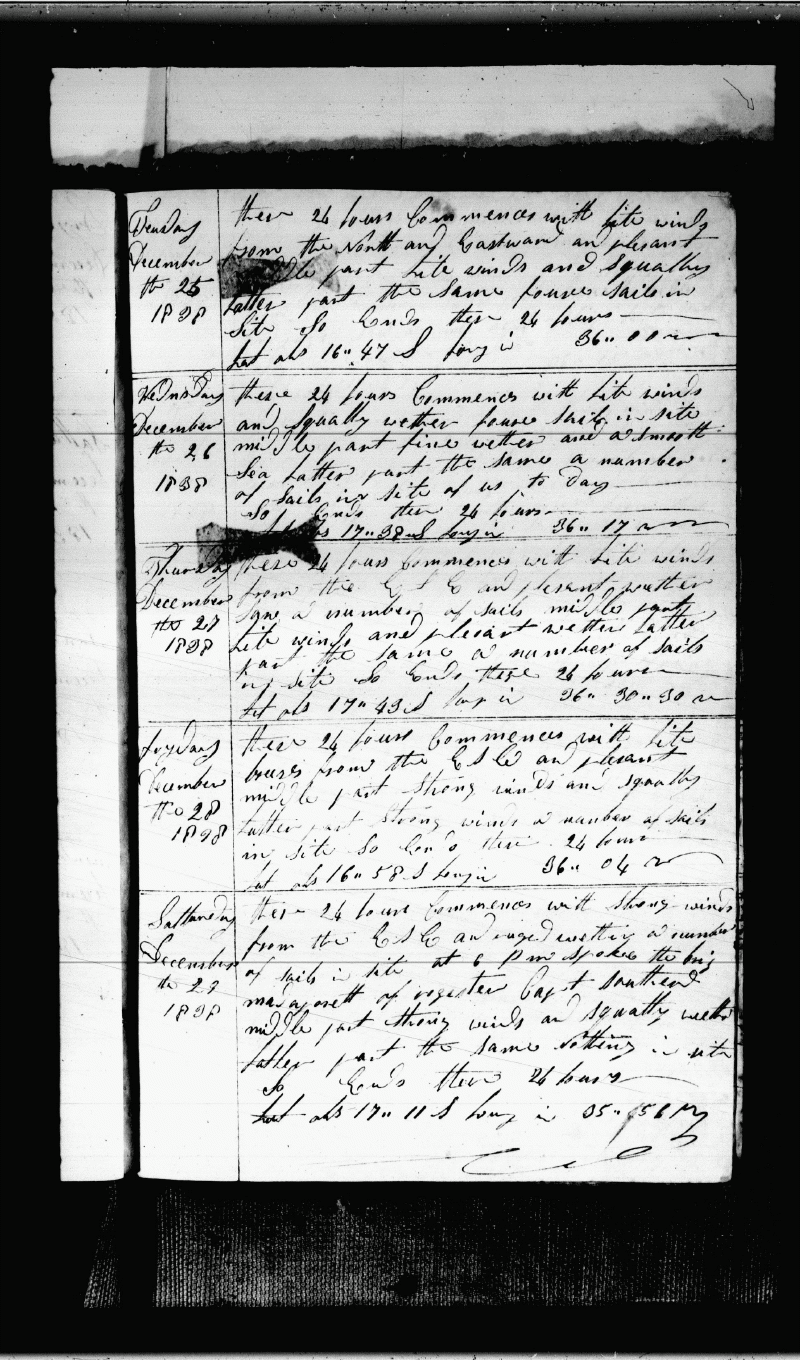 Teusday
December
the 25
1838
these 24 hours Commences with lite winds
from the North and Eastward an plesant
middle part lite winds and squally
latter part the same foure sails in
site So Ends these 24 hours
Lat obs 16" 47 S Long in 36" 00
Wednsday
December
the 26
1838
these 24 hours Commences with lite winds
and squally wether foure sails in site
middle part fine wether and a smooth
Sea latter part the same a number
of sails in site of us to Day
So Ends these 24 hours
Lat obs 17" 38 S Long in 36" 17
Thursday
December
the 27
1838
these 24 hours Commences with lite winds
from the E S E and plesant wether
a number of sails middle part
lite winds and plesant wether latter
part the same a number of sails
in site So Ends these 24 hours
Lat obs 17" 43 S Long in 36" 30" 30
fryday
December
the 28
1838
these 24 hours Commences with lite
breses from the E S E and plesant
middle part strong winds and squally
latter part strong winds a number of sails
in site So Ends these 24 hours
Lat obs 16" 58 S Long in 36" 04
Satturday
December
the 29
1838
these 24 hours Commences with strong winds
from the E S E and ruged wether a number
of sails in site at 6 P m spoke the brig
of Capt
middle part strong winds and squally wether
latter part the same nothing in site
So Ends these 24 hours
Lat obs 17" 11 S Long in 35" 56